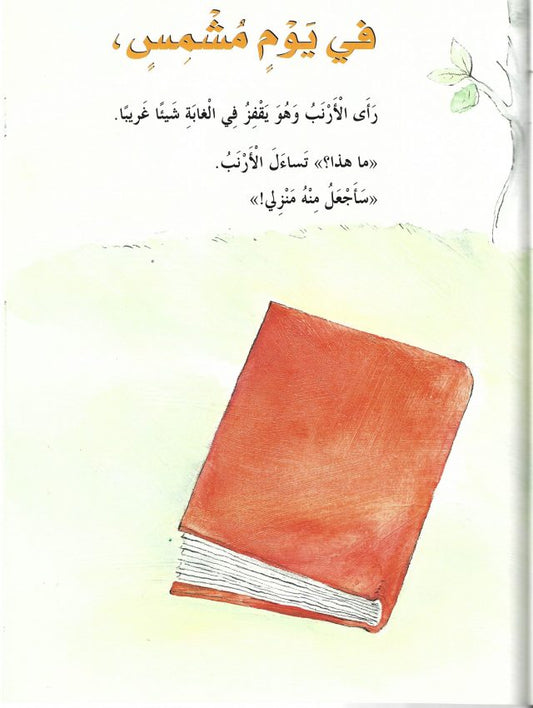 في يَوْمٍ مُشْمِسٍ،
رَأَى الْأَرْنَبُ وَهُوَ يَقْفِزُ فِي الْغابَةِ شَيْئًا غَريبًا.
«ما هذا؟» تَساءَلَ الْأَرْنَبُ.
«سَأَجْعَلُ مِنْهُ مَنْزِلي!»